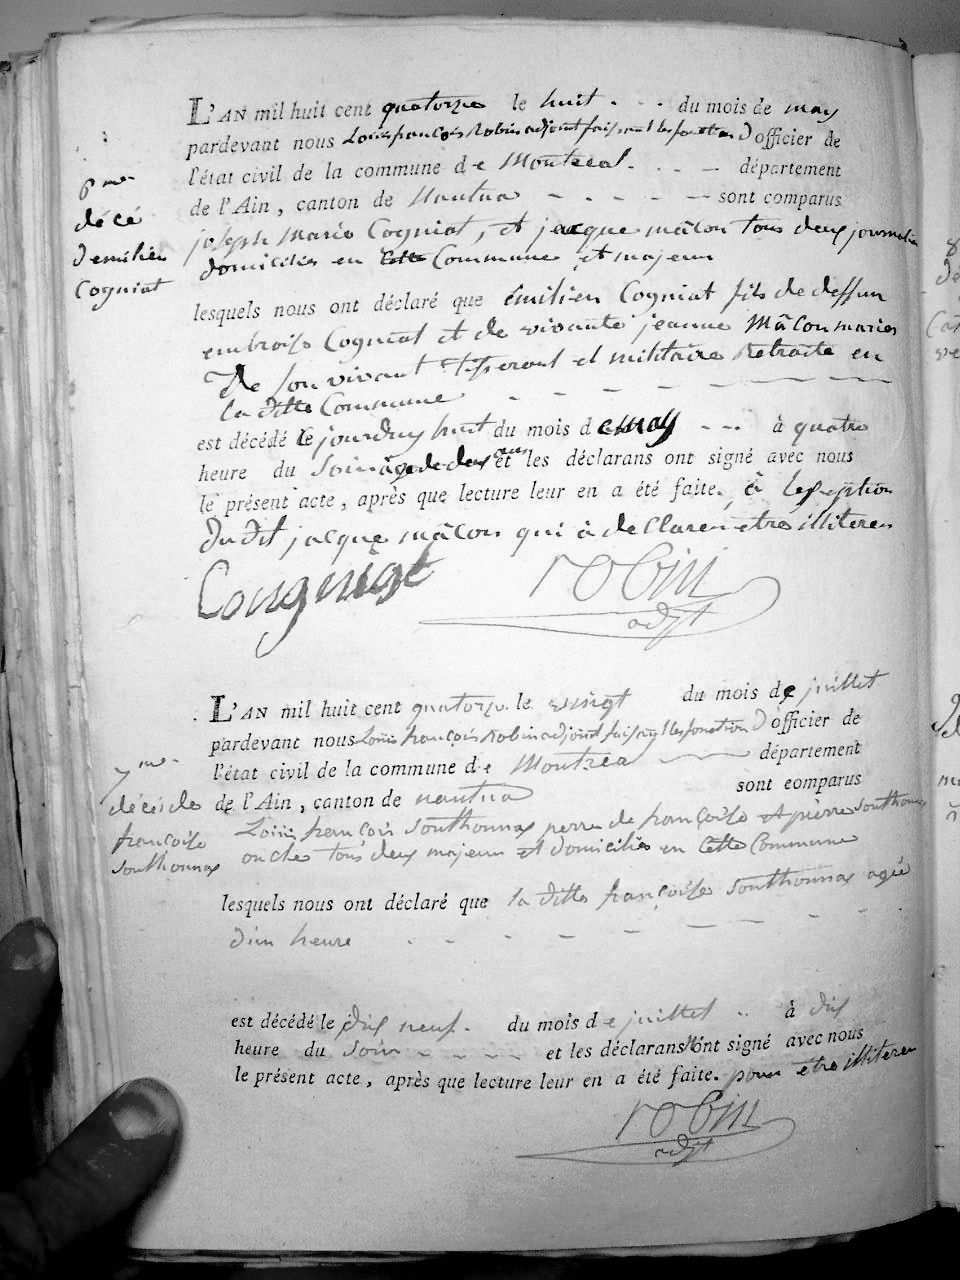 L'AN mil huit cent quatorze le huit . . . du mois de may
pardevant nous Louis françois Robin adjoint faisant les fonction D officier de
l'état civil de la commune de Montreal . . . — département
de l'Ain, canton de Nantua — — — — — sont comparus
joseph marie Cogniat, et jacque mâcon tous deux journalier
domiciliés en Cette Commune et majeur
6me
décé
d'emilien
Cogniat
lesquels nous ont déclaré que émilien Cogniat fils de deffun
embroise Cogniat et de vivante jeanne Mâcon maries
De son vivant tisserant et militaire Retraite en
la ditte Commune
est décédé le jourduy huit du mois de may - - - à quatre
heure du Soir âge de deux ans et les déclarans ont signé avec nous
le présent acte, après que lecture leur en a été faite. à lexeption
du dit jacque mâcon qui à declaren etre illiteren
Cougniat robin
adjt
L'AN mil huit cent quatorze le vingt du mois de juillet
pardevant nous Louis françois Robin adjoint faisant les fonction D officier de
l'état civil de la commune de Montrea — département
de l'Ain, canton de nantua sont comparus
Louis francois Southonnax perre de françoise et pierre southonnax
oncles tous deux majeur et domiciliés en Cette Commune
7me
décès de
françoise
southonnax
lesquels nous ont déclaré que la ditte françoise Southonnax agée
d'un heure
est décédé le dix neuf . du mois de juillet .. à dix
heure du Soir - - - - et les déclarans n'ont signé avec nous
le présent acte, après que lecture leur en a été faite. pour etre illiteren
robin
adjt